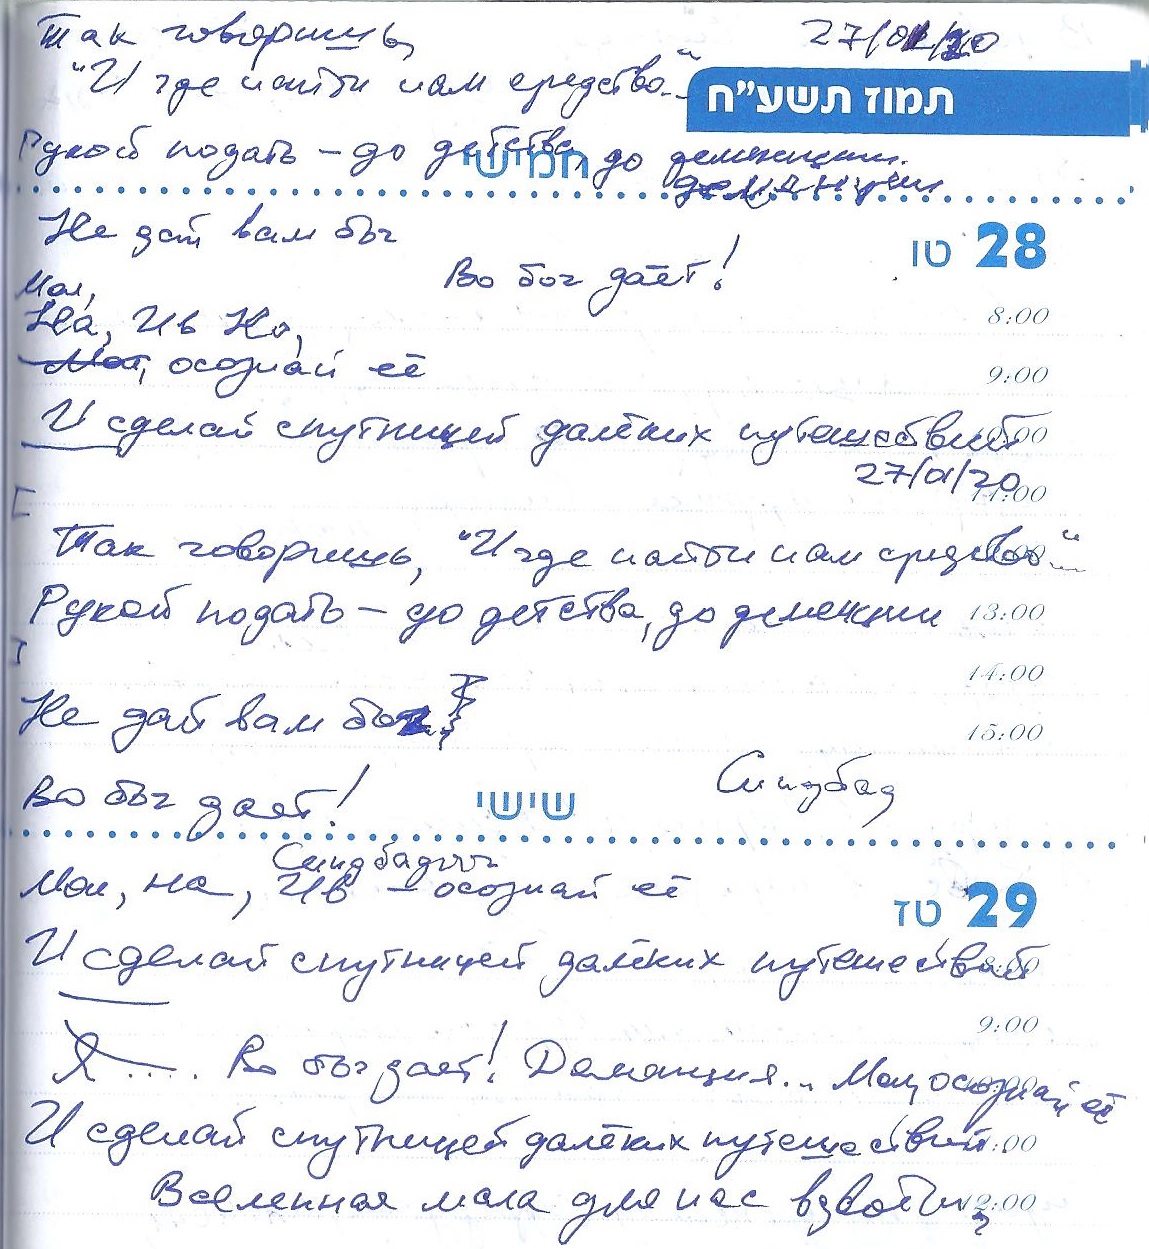 Так говоришь, 27/01/20
"И где найти нам средство..."
תמוז תשע"ח
Рукой подать – до детства, до деменции.
חמישי
деменции
Не дай вам бог
28 טו
Во бог даёт!
Мол,
8:00
На, Ив Но,
Мол, осознай её
9:00
И сделай спутницей далёких путешествий
10:00
27/01/20
11:00
Так говоришь, "И где найти нам средство..."
Рукой подать – до детства, до деменции
13:00
14:00
Не дай вам бог
15:00
Синдбад
Во бог даёт!
שישי
Синдбад
Мол, на, Ив – осознай её
29 טז
И сделай спутницей далёких путешествий
8:00
9:00
Я .... Во бог даёт! Деменция... Мол, осознай её
И сделай спутницей далёких путешествий
:00
Вселенная мала для нас
12:00